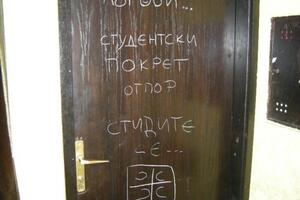 СТУДЕНТСКИ
ПОКРЕТ
ОТПОР
СТИДИТЕ
СЕ...
Ɔ C
Ɔ C